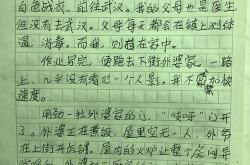 白色战衣，前往武汉。我的父母也是医生
但没有去武汉。父母每天都会在镇上测体
温，消毒。而我，则待在家中。
作业写完，便跑去下街外婆家。一路
上，几乎没有看见一个人影。我不禁加快
速度。
用劲一推外婆家的门，“吱呀”门开
了。外婆正在煮饭，屋里空无一人，外爷
在上街开店铺。屋内的火炉让整个房间异